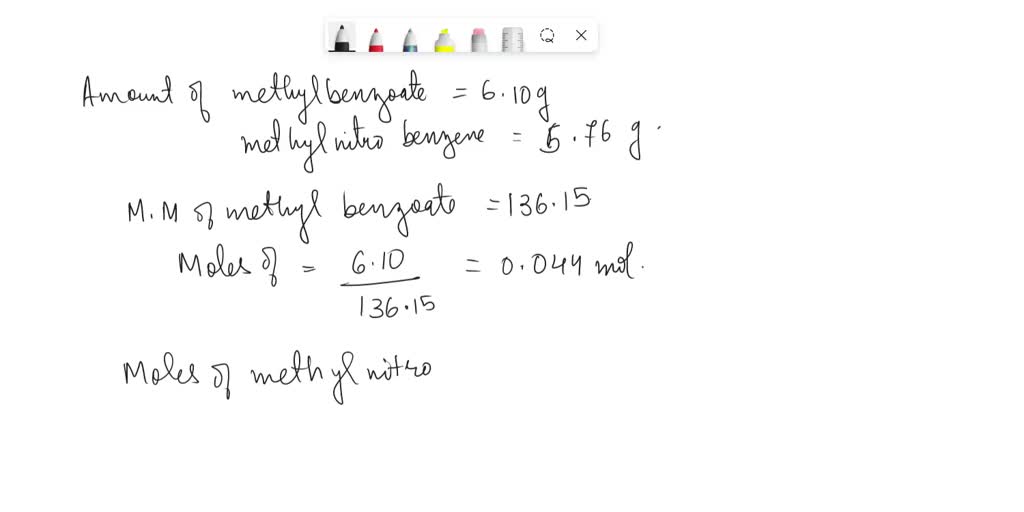 Amount of methylbenzoate = 6.10g
methylnitro benzene = 5.76 g.
M.M of methyl benzoate = 136.15
Moles of = 6.10 / 136.15 = 0.044 mol.
Moles of methyl nitro